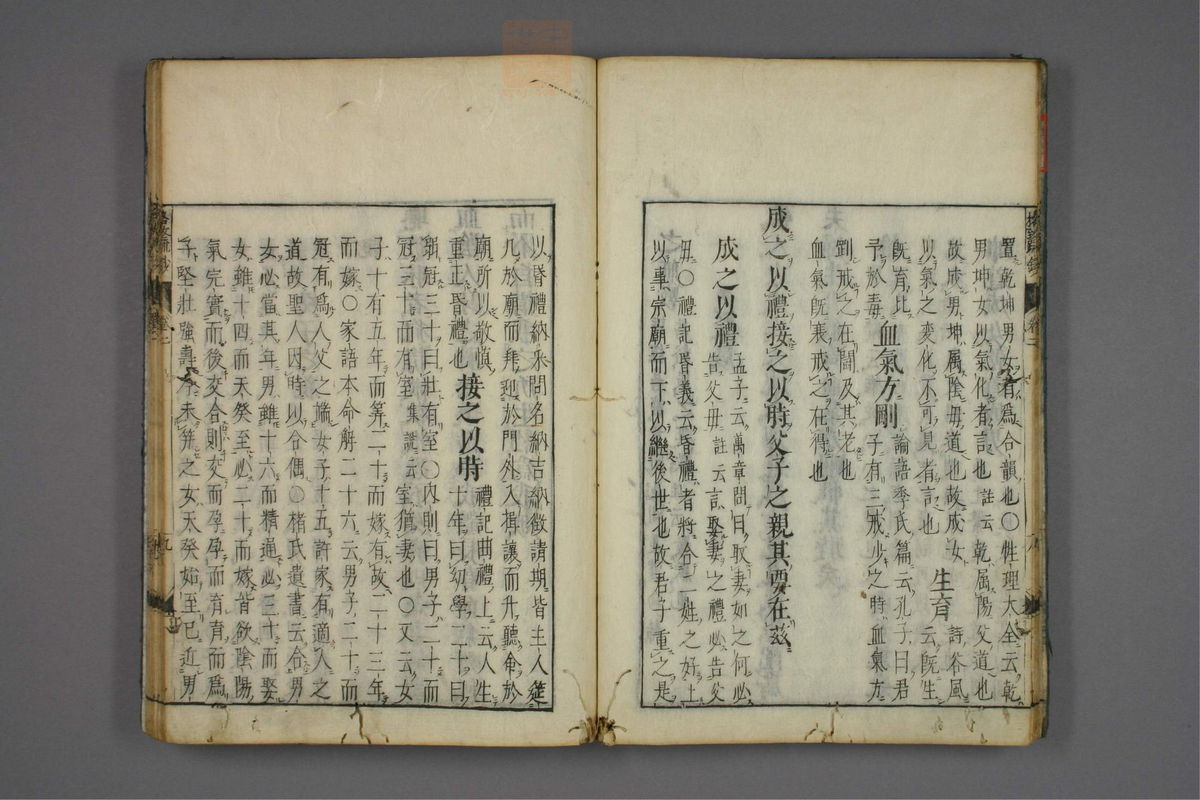 置乾坤男女有爲合韻也○性理大全云乾
男坤女以氣化者言也註云乾属陽父道也
故成男坤属陰母道也故成女
以氣之変化不可見者言也 生育 詩谷風云既生
既育比予於毒 血氣方剛 論語季氏篇云孔子曰君子有三戒少之時血氣方
剛戒之在闘及其老也
血氣既衰戒之在得也
成之以禮接之以時父子之親其要在茲
成之以禮 孟子云萬章問曰取妻如之何必告父母註云言娶妻之禮必告父
母○禮記昏義云昏禮者將合二姓之好上
以事宗廟而下以継後世也故君子重之是
以昏禮納采問名納吉納徴請期皆主人筵
几於廟而拜迎於門外入揖讓而升聽命於
廟所以敬慎
重正昏禮也 接之以時 禮記曲禮上云人生十年曰幼學二十曰
弱冠三十曰壯有室○内則曰男子二十而
冠三十而有室集說云室猶妻也○又云女
子十有五年而筓二十而嫁有故二十三年
而嫁○家語本命解二十六云男子二十而
冠有爲人父之端女子十五許家有適人之
道故聖人因時以合偶○楮氏遺書云合男
女必當其年男雖十六而精通必三十而娶
女雖十四而天癸至必二十而嫁皆欲陰陽
氣完實而後交合則交而孕孕而育育而爲
子堅壯強壽今未筓之女天癸始至已近男